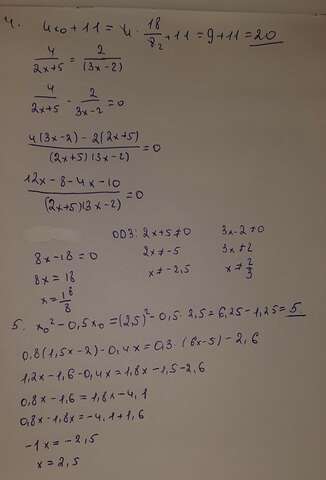 4. 4x₀ + 11 = 4 · 18/8₂ + 11 = 9 + 11 = 20
4/(2x+5) = 2/(3x-2)
4/(2x+5) - 2/(3x-2) = 0
(4(3x-2) - 2(2x+5))/((2x+5)(3x-2)) = 0
(12x - 8 - 4x - 10)/((2x+5)(3x-2)) = 0
8x - 18 = 0
8x = 18
x = 18/8
ОДЗ: 2x+5 ≠ 0
2x ≠ -5
x ≠ -2,5
3x-2 ≠ 0
3x ≠ 2
x ≠ 2/3
5. x₀² - 0,5x₀ = (2,5)² - 0,5 · 2,5 = 6,25 - 1,25 = 5.
0,8(1,5x-2) - 0,4x = 0,3 · (6x-5) - 2,6
1,2x - 1,6 - 0,4x = 1,8x - 1,5 - 2,6
0,8x - 1,6 = 1,8x - 4,1
0,8x - 1,8x = -4,1 + 1,6
-1x = -2,5
x = 2,5